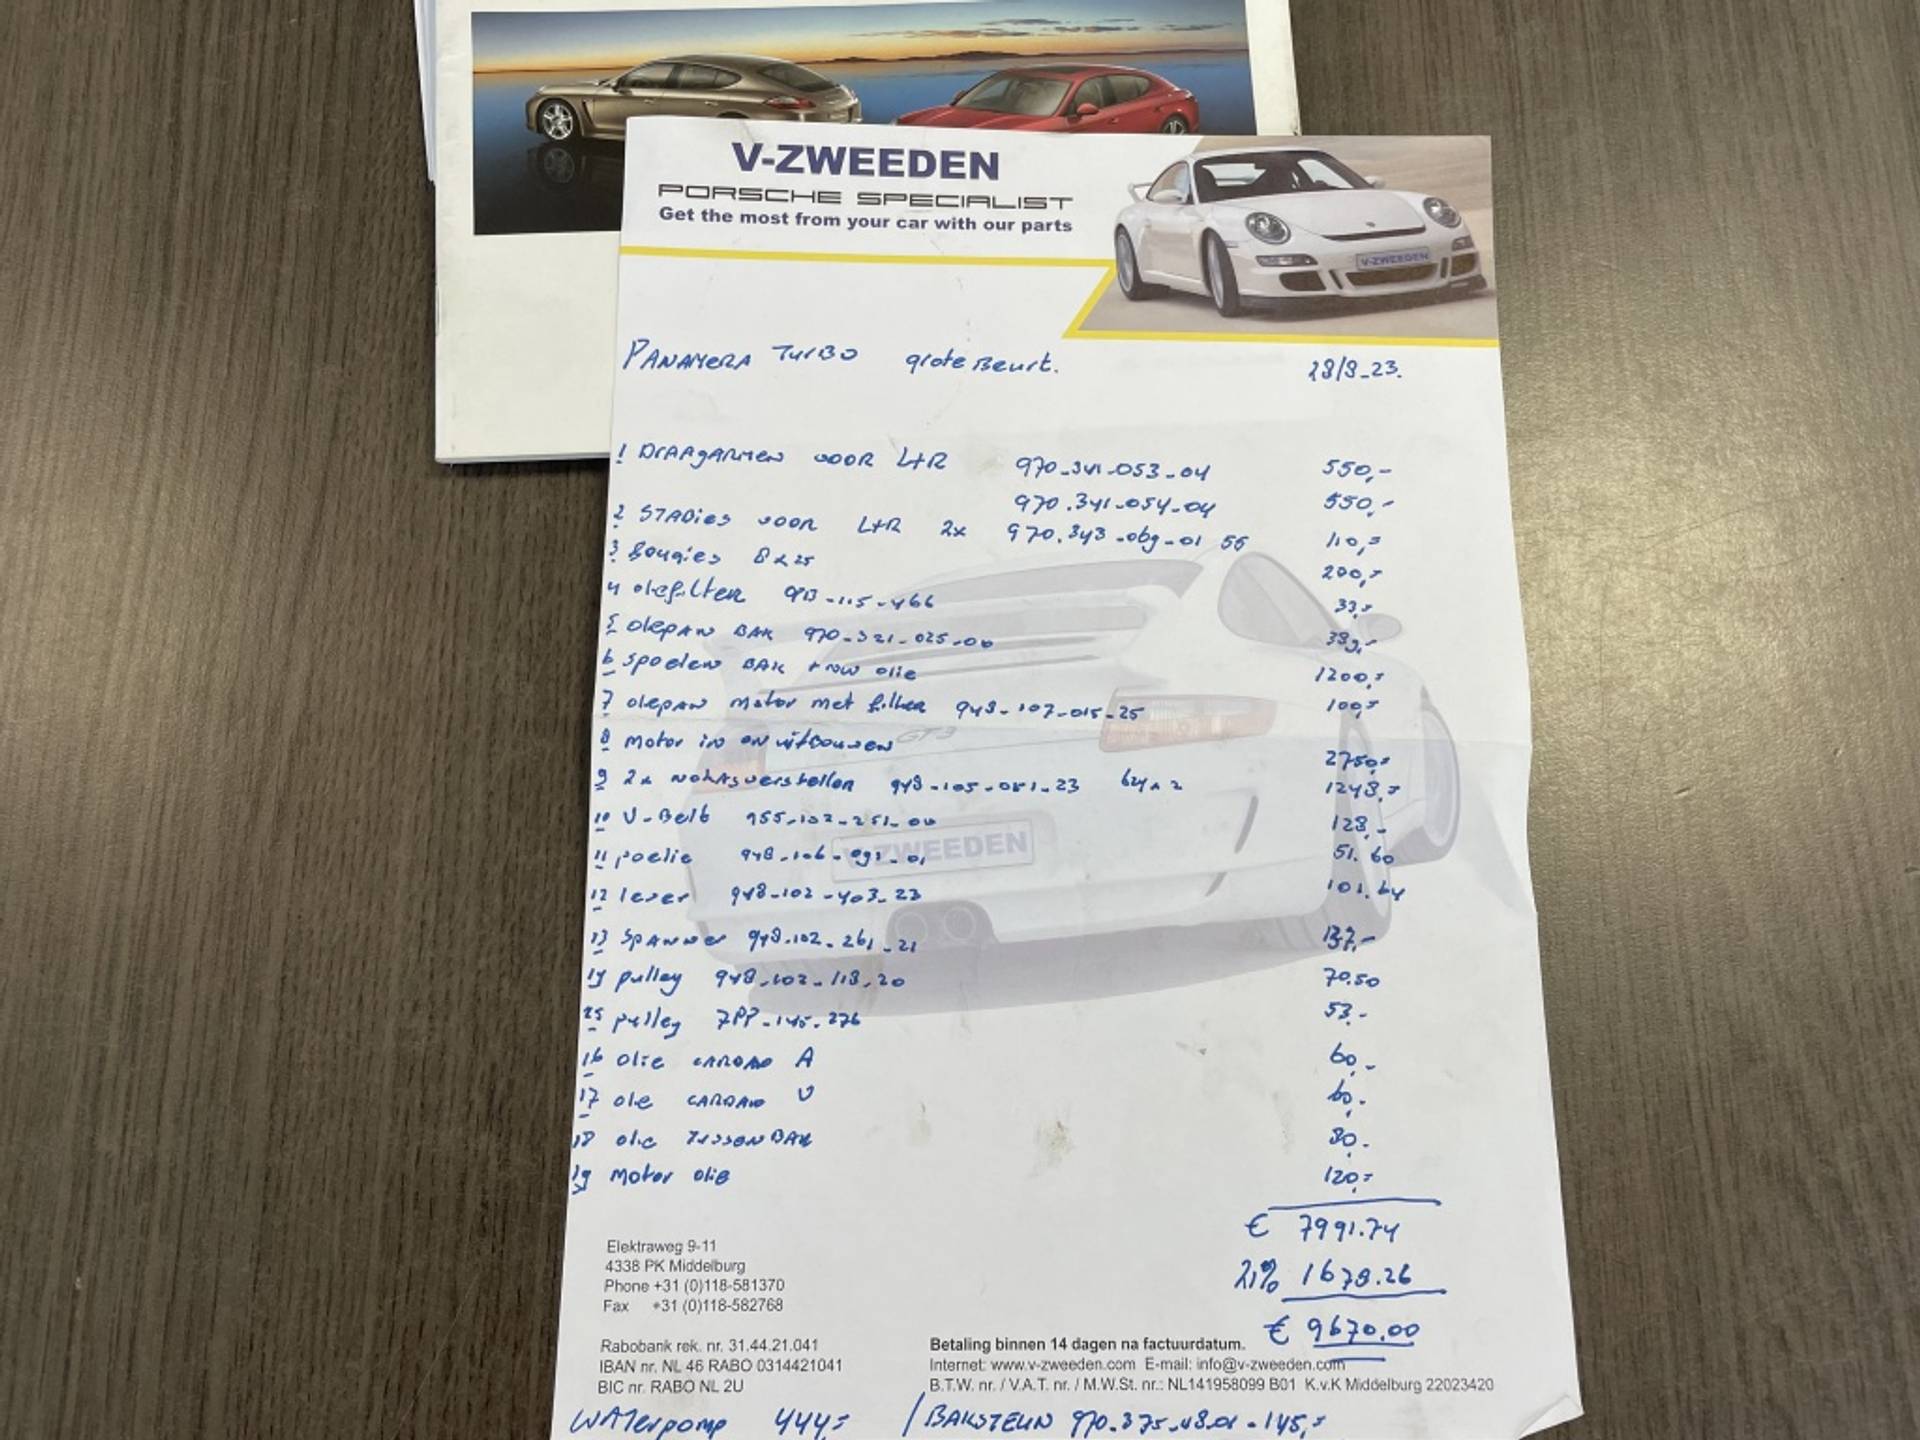 V-ZWEEDEN
PORSCHE SPECIALIST
Get the most from your car with our parts
V-ZWEEDEN
PANAMERA TURBO grote Beurt. 28/8-23.
1 DRAAgARMEN VOOR L+R 970-341-053-04 550,-
970.341-054-04 550,-
2 STABies VOOR L+R 2x 970.343-069-01 55 110,=
3 Bougies 8x25 200,=
4 oliefilter 115-466 33,=
5 oliepAN BAK 970-321-025-00 389,-
6 spoelen BAK + NW olie 1200,=
7 oliepAN motor met filter 948-107-015-25 100,=
8 motor in en uitbouwen 2750,=
GT3
9 2x NOKAsverstellen 948-105-051-23 624x2 1248,=
10 V-Belt 955-102-251-00 128,-
11 poelie 948-106-091-01 51.60
V-ZWEEDEN
12 948-102-403-23 101.64
13 SpANNer 948.102-261-21 137,-
14 pulley 948-102-118-20 70.50
15 pulley 7PP-145-276 53.-
16 olie CARDAN A 60,-
17 olie CARDAN V 60,-
18 olie TussenBAK 80.-
19 Motor olie 120,=
€ 7991.74
21% 1678.26
€ 9670.00
Elektraweg 9-11
4338 PK Middelburg
Phone +31 (0)118-581370
Fax +31 (0)118-582768
Rabobank rek. nr. 31.44.21.041
IBAN nr. NL 46 RABO 0314421041
BIC nr. RABO NL 2U
Betaling binnen 14 dagen na factuurdatum.
Internet: www.v-zweeden.com E-mail: info@v-zweeden.com
B.T.W. nr. / V.A.T. nr. / M.W.St. nr.: NL141958099 B01 K.v.K Middelburg 22023420
WATerpomp 444,= / BAKSTEUN 970.375-48.01-145,=